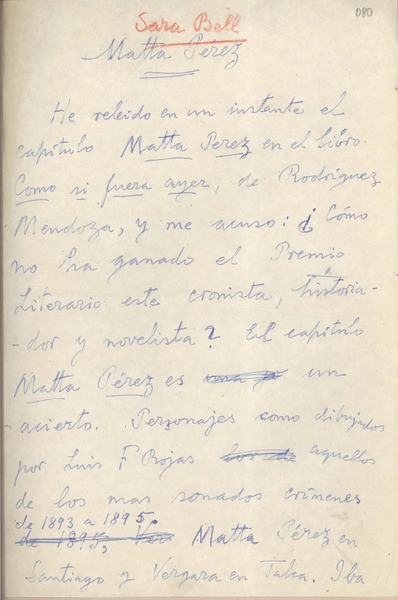 080
Sara Bell
Matta Pérez
He releido en un instante el
capítulo Matta Perez en el libro
Como si fuera ayer, de Rodríguez
Mendoza, y me acuso: ¿Cómo
no ha ganado el Premio
Literario este cronista, historia-
-dor y novelista? El capítulo
Matta Pérez es un
acierto. Personajes como dibujados
por Luis F Rojas aquellos
de los mas sonados crímenes
de 1893 a 1895.
de 1895, Matta Pérez en
Santiago y Vergara en Talca. Iba